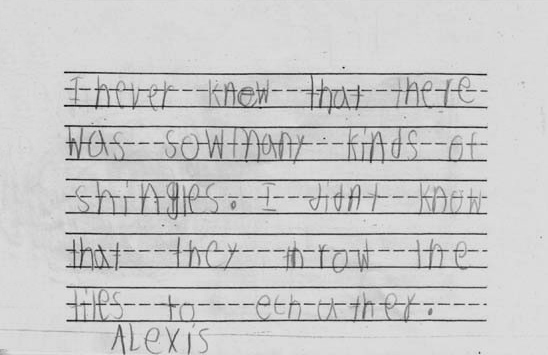 I never know that there
was so many kinds of
shingles. I didnt know
that they throw the
tiles to ech uther.
ALexis